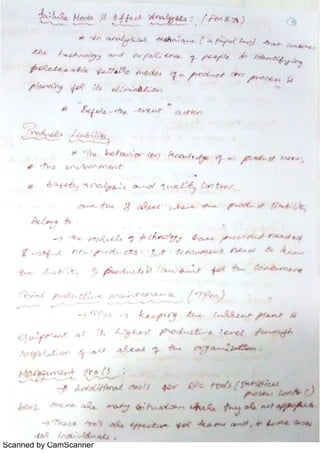 Failure Mode & Effect Analysis: (FMEA)
* An analytical technique (a paper test) that combines
the technology and experience of people in identifying
foreseeable failure modes of a product (or) process &
planning for its elimination.
* "Before-the-event" action
Products Liability
* The behavior (or) knowledge of a product user,
* The environment
* Safety analysis and quality control
are the 3 areas where the product liability
belong to.
→ The of technology have provided needed
& useful new products. But consumers need to know
the liability & products lawsuit for the consumers
Total productive maintenance (TPM)
→ TPM is keeping the current plant &
equipment at its highest productive level through
cooperation of all areas of the organization.
Management tools:
→ Additional tools for SPC tools (statistical
process control)
bcoz there are many situations where they are not appropriate.
→ These tools are effective for teams and, in some cases
for individuals.
Scanned by CamScanner